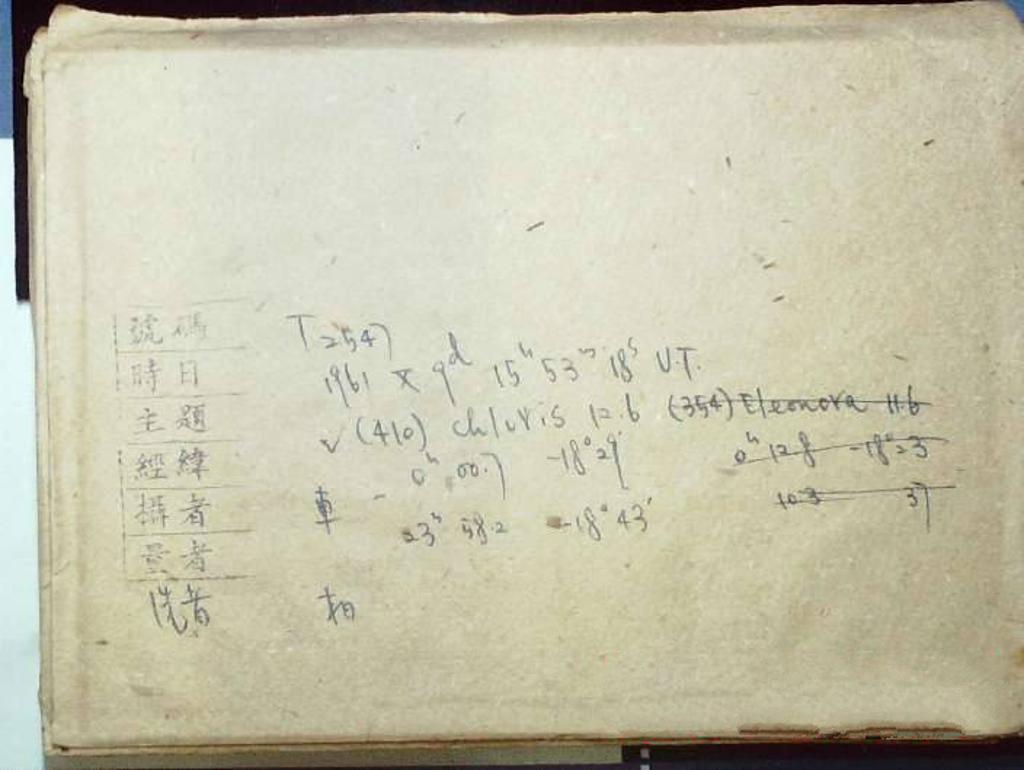 號碼 T2547
時日 1961 X 9d 15h 53m 18s U.T.
主題 √ (410) chloris 12.6 (354) Eleonora 11.6
經緯 0h 00.7 -18°29' 0h 12.8 -18°23
10.3 37
攝者 車 23h 58.2 -18°43'
量者
洗者 柏